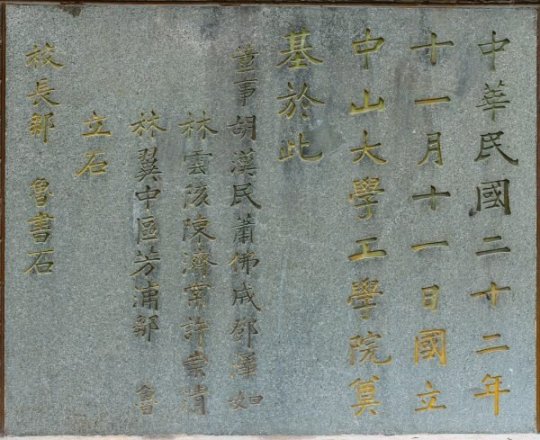 中華民國二十二年
十一月十一日國立
中山大學工學院奠
基於此
董事胡漢民蕭佛成鄧澤如
林雲陔陳濟棠許崇清
林翼中區芳浦鄒 魯
立石
校長鄒 魯書石